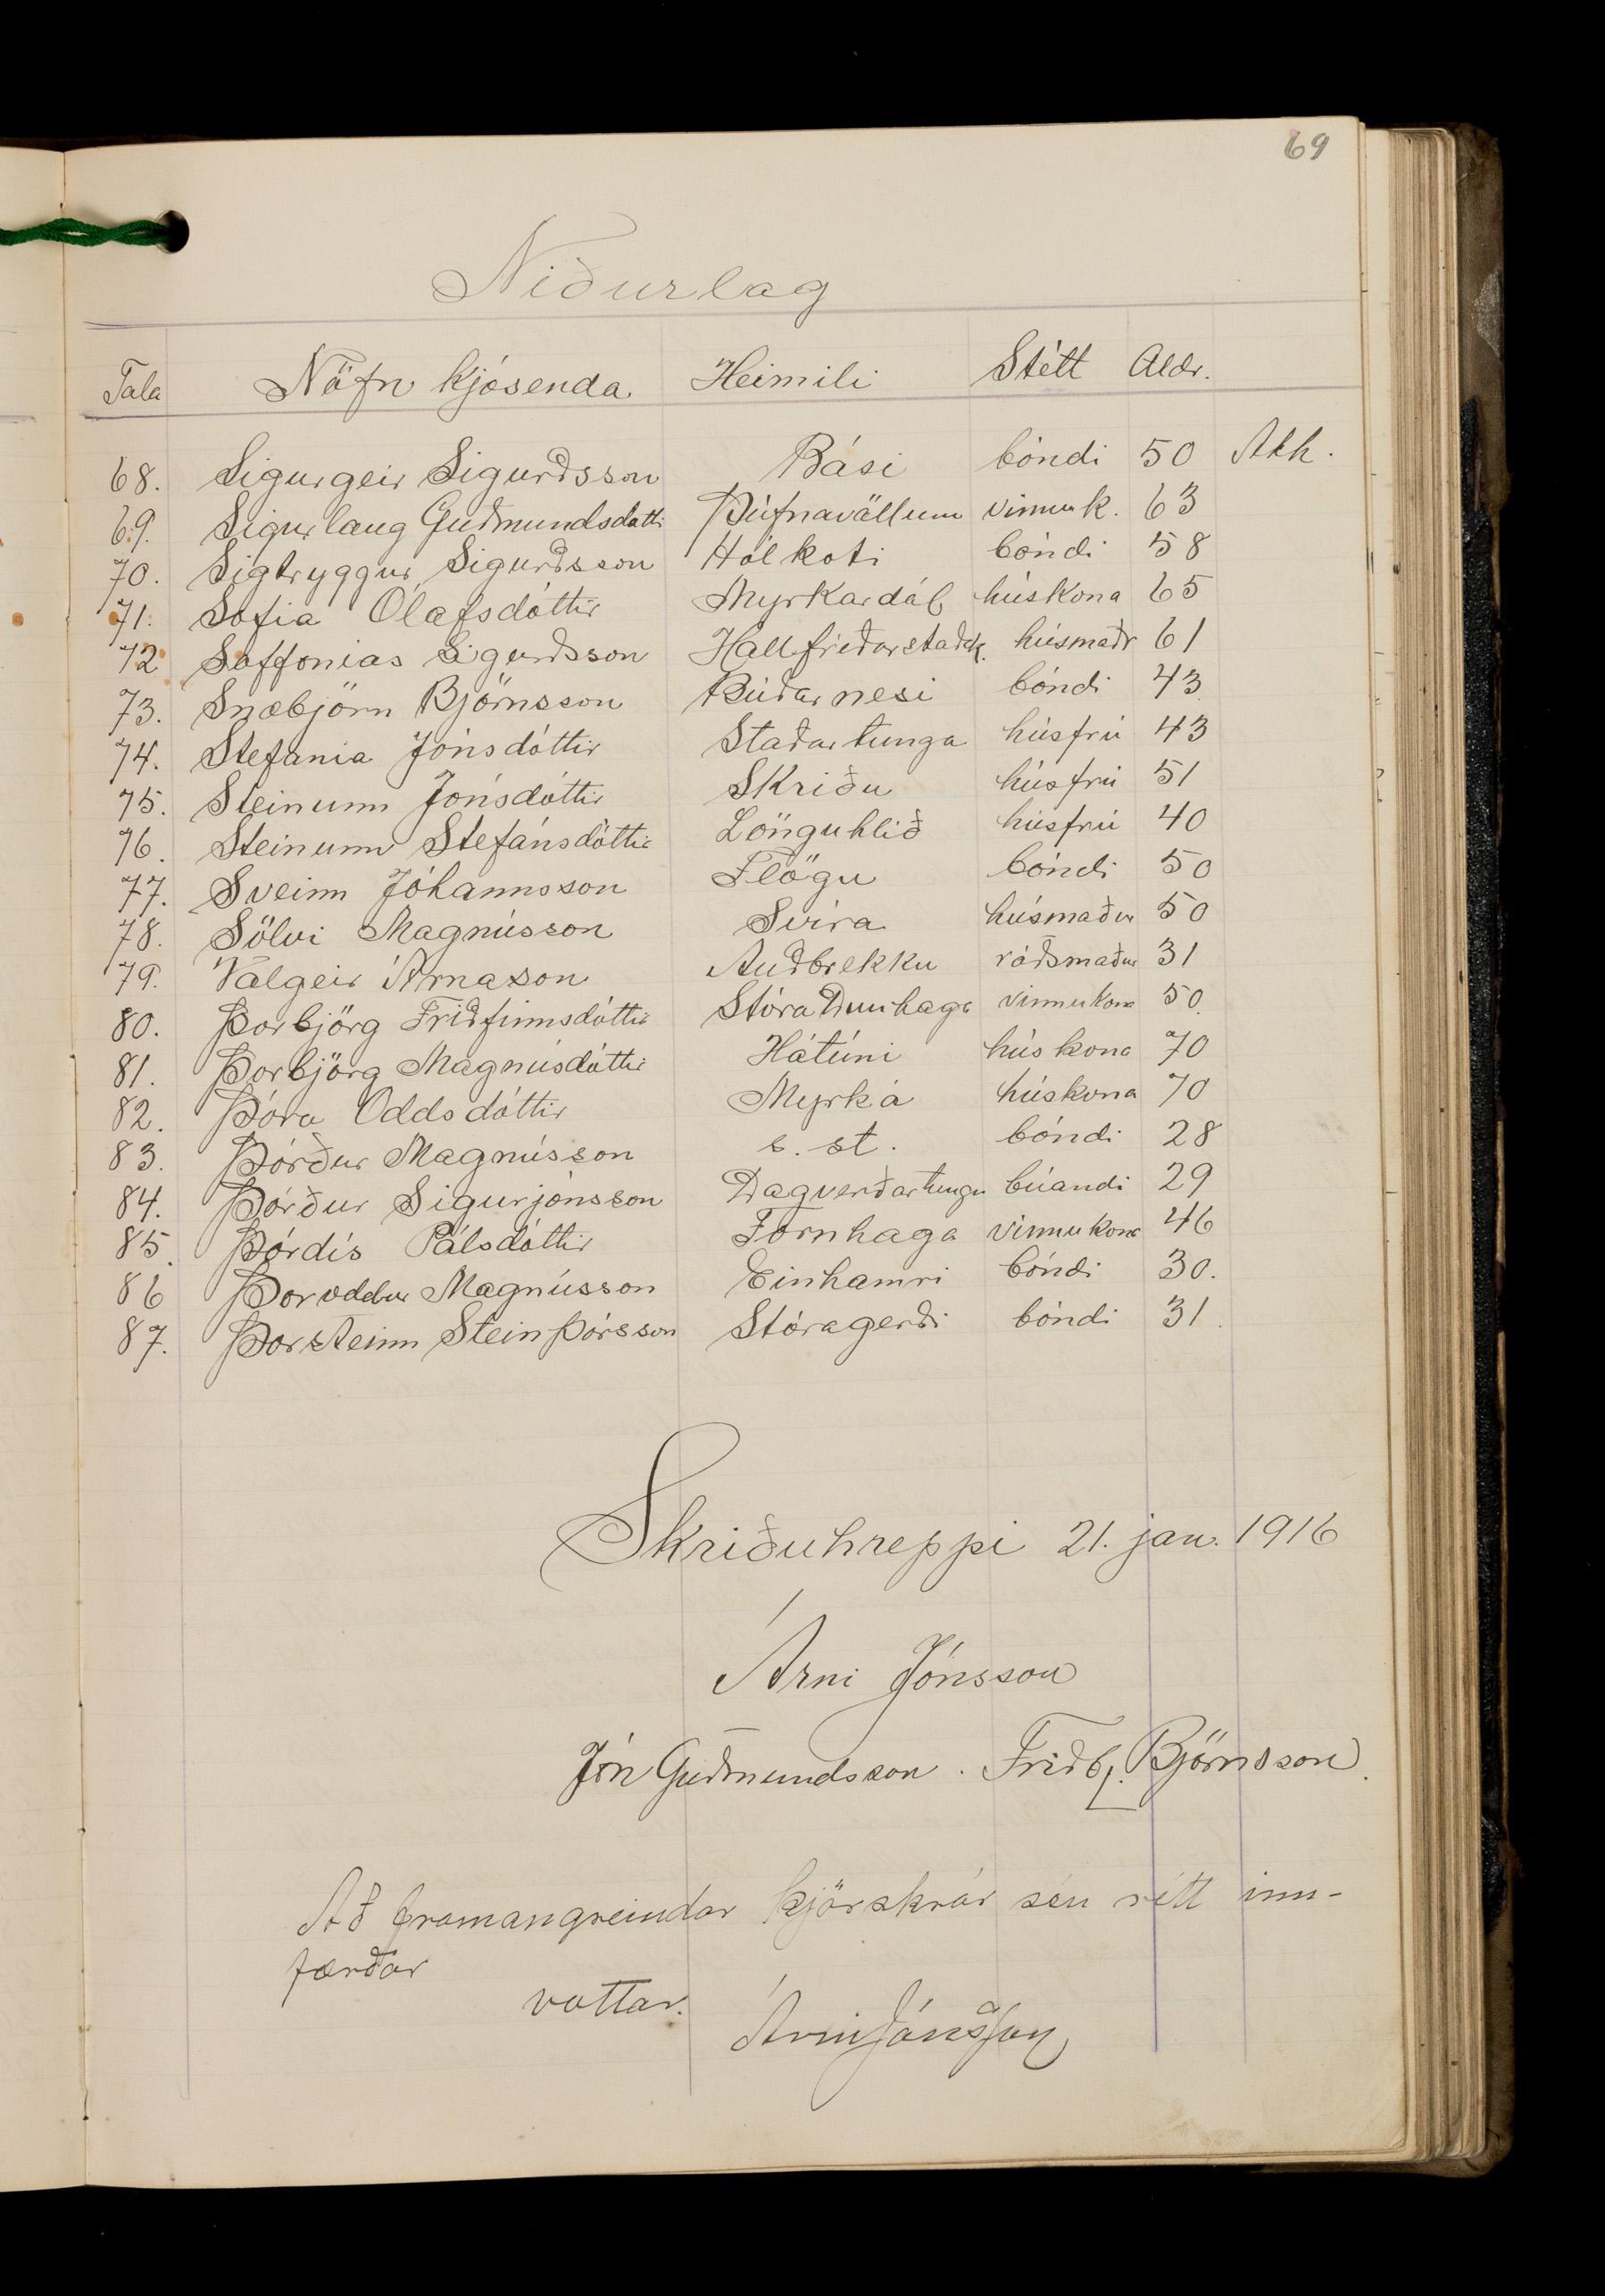 69
Niðurlag
Tala Nöfn kjósenda Heimili Stétt Aldr.
68. Sigurgeir Sigurðsson Bási bóndi 50 Ath.
69. Sigurlaug Guðmundsdótti Þúfnavöllum vinnuk. 63
70. Sigtryggur Sigurðsson Hólkoti bóndi 58
71. Sofia Ólafsdóttir Myrkardal húskona 65
72 Soffonias Sigurðsson Hallfríðarstaðk. húsmaðr 61
73. Snæbjörn Björnsson Búðarnesi bóndi 43
74. Stefania Jónsdóttir Staðartunga húsfrú 43
75. Steinunn Jónsdóttir Skriðu húsfrú 51
76. Steinunn Stefánsdóttir Lönguhlið húsfrú 40
77. Sveinn Jóhannsson Flögu bóndi 50
78. Sölvi Magnússon Svíra húsmaður 50
79. Valgeir Árnason Auðbrekku ráðsmaður 31
80. Þorbjörg Friðfinnsdóttir Stóra Dunhaga vinnukona 50.
81. Þorbjörg Magnúsdóttir Hátúni húskona 70
82. Þóra Oddsdóttir Myrká húskona 70
83. Þórður Magnússon s. st. bóndi 28
84. Þórður Sigurjónsson Dagverðartungu búandi 29
85. Þórdís Pálsdóttir Fornhaga vinnukona 46
86 Þoroddur Magnússon Einhamri bóndi 30.
87. Þorsteinn Steinþórsson Stóragerði bóndi 31.
Skriðuhreppi 21. jan. 1916
Árni Jónsson
Jón Guðmundsson. Friðbj. Björnsson.
Að framangreindar kjörskrár séu rétt inn-
færðar
vottar.
Árni Jónsson